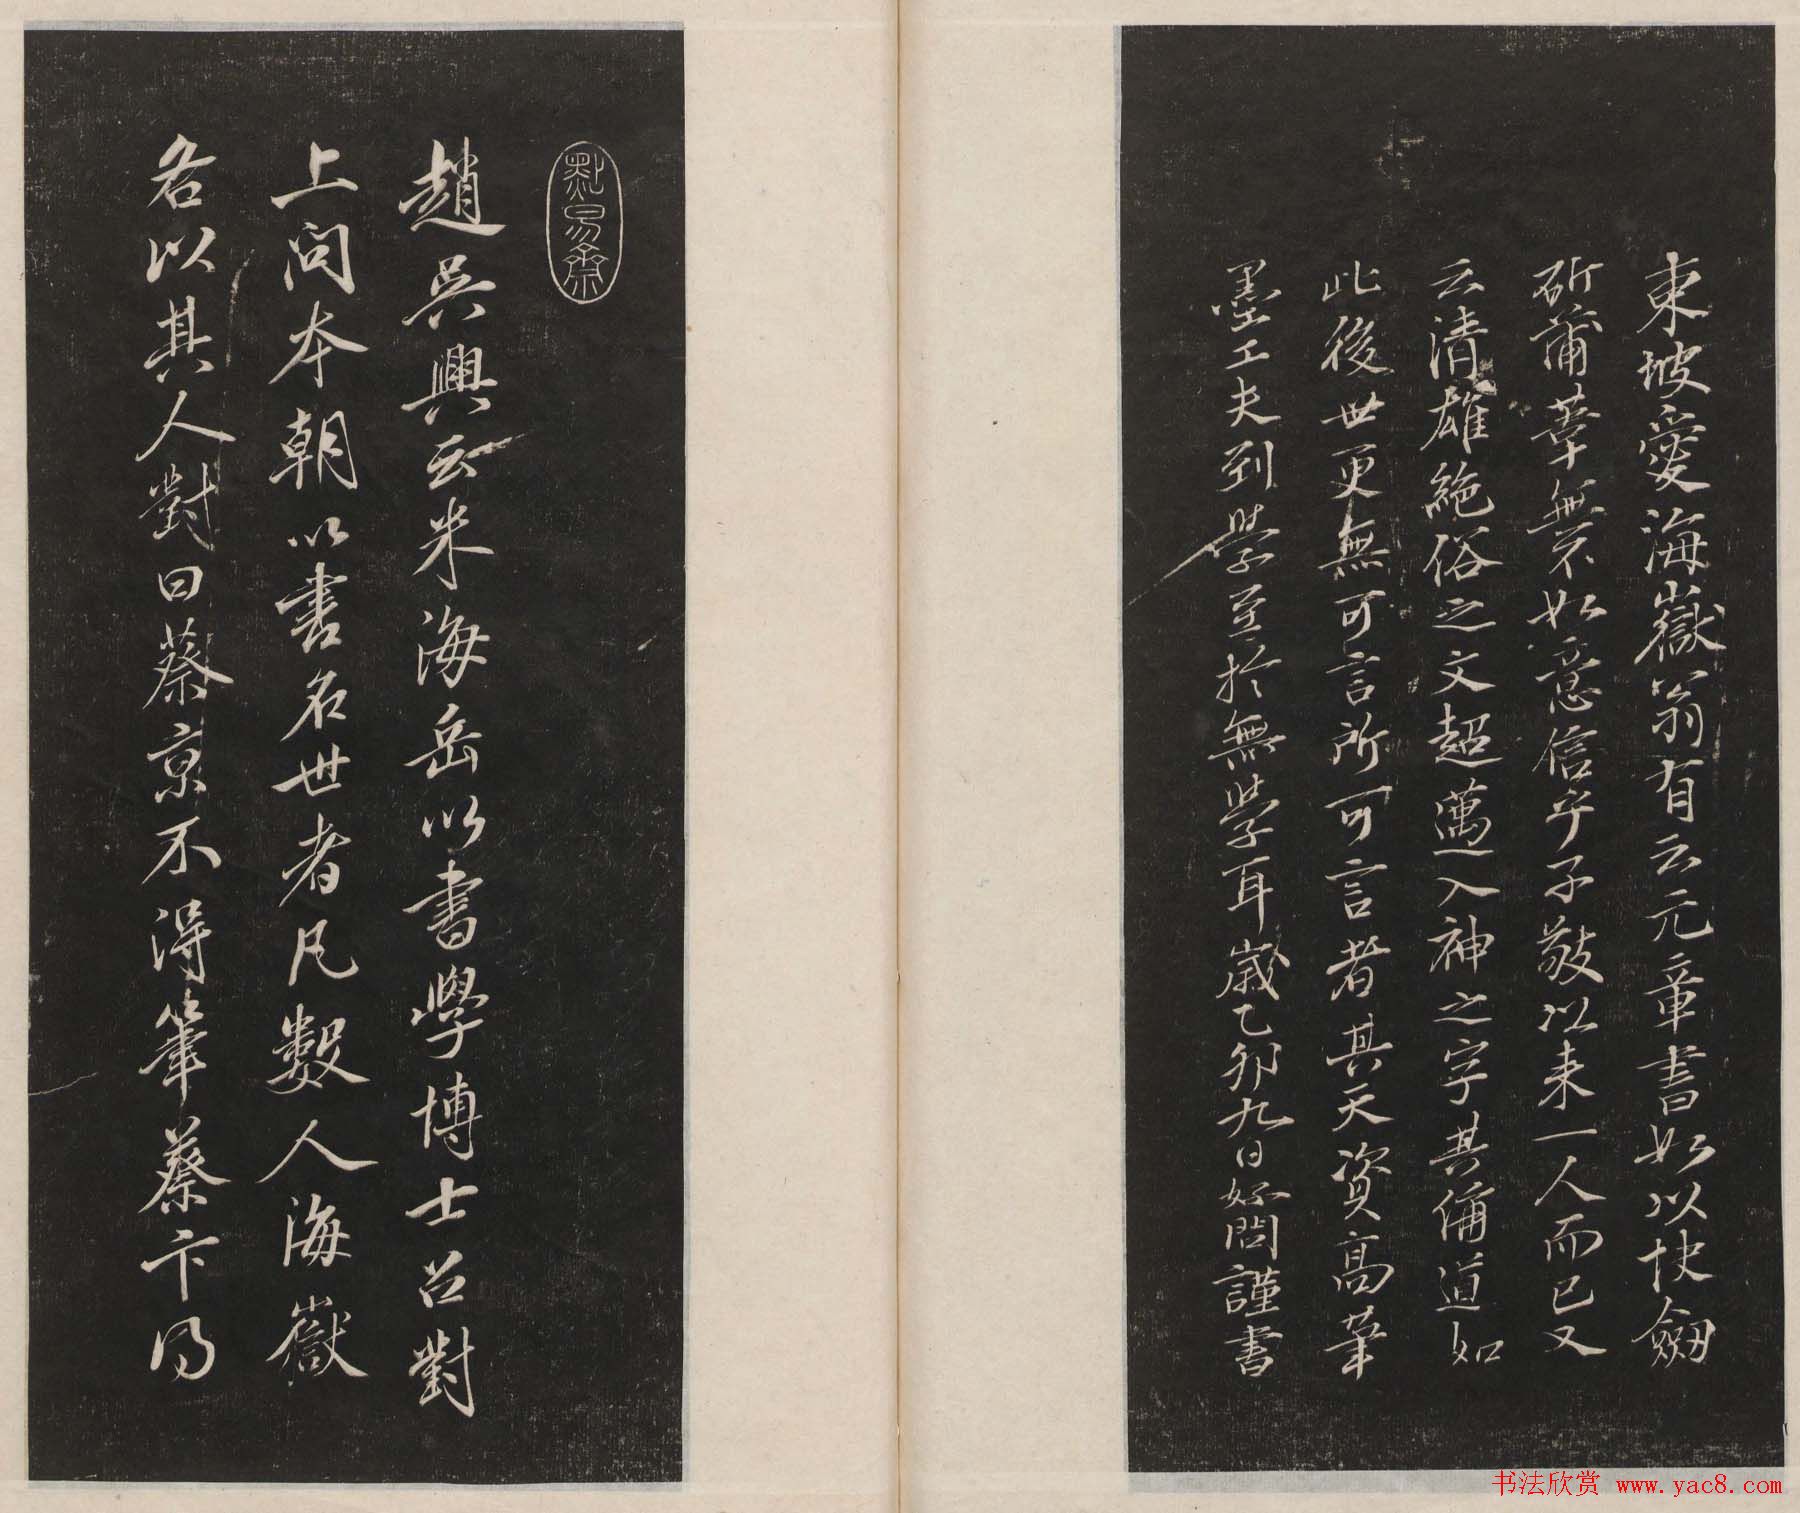 東坡愛海嶽翁有云元章書如以快劒
斫蒲葦無不如意信乎子敬以来一人而已又
云清雄絶俗之文超邁入神之字其稱道如
此後世更無可言所可言者其天資髙筆
墨工夫到學至於無學耳歲乙卯九日好問謹書
點易齋
趙吳興云米海岳以書學博士召對
上問本朝以書名世者凡數人海嶽
各以其人對曰蔡京不得筆蔡卞得
书法欣赏 www.yac8.com